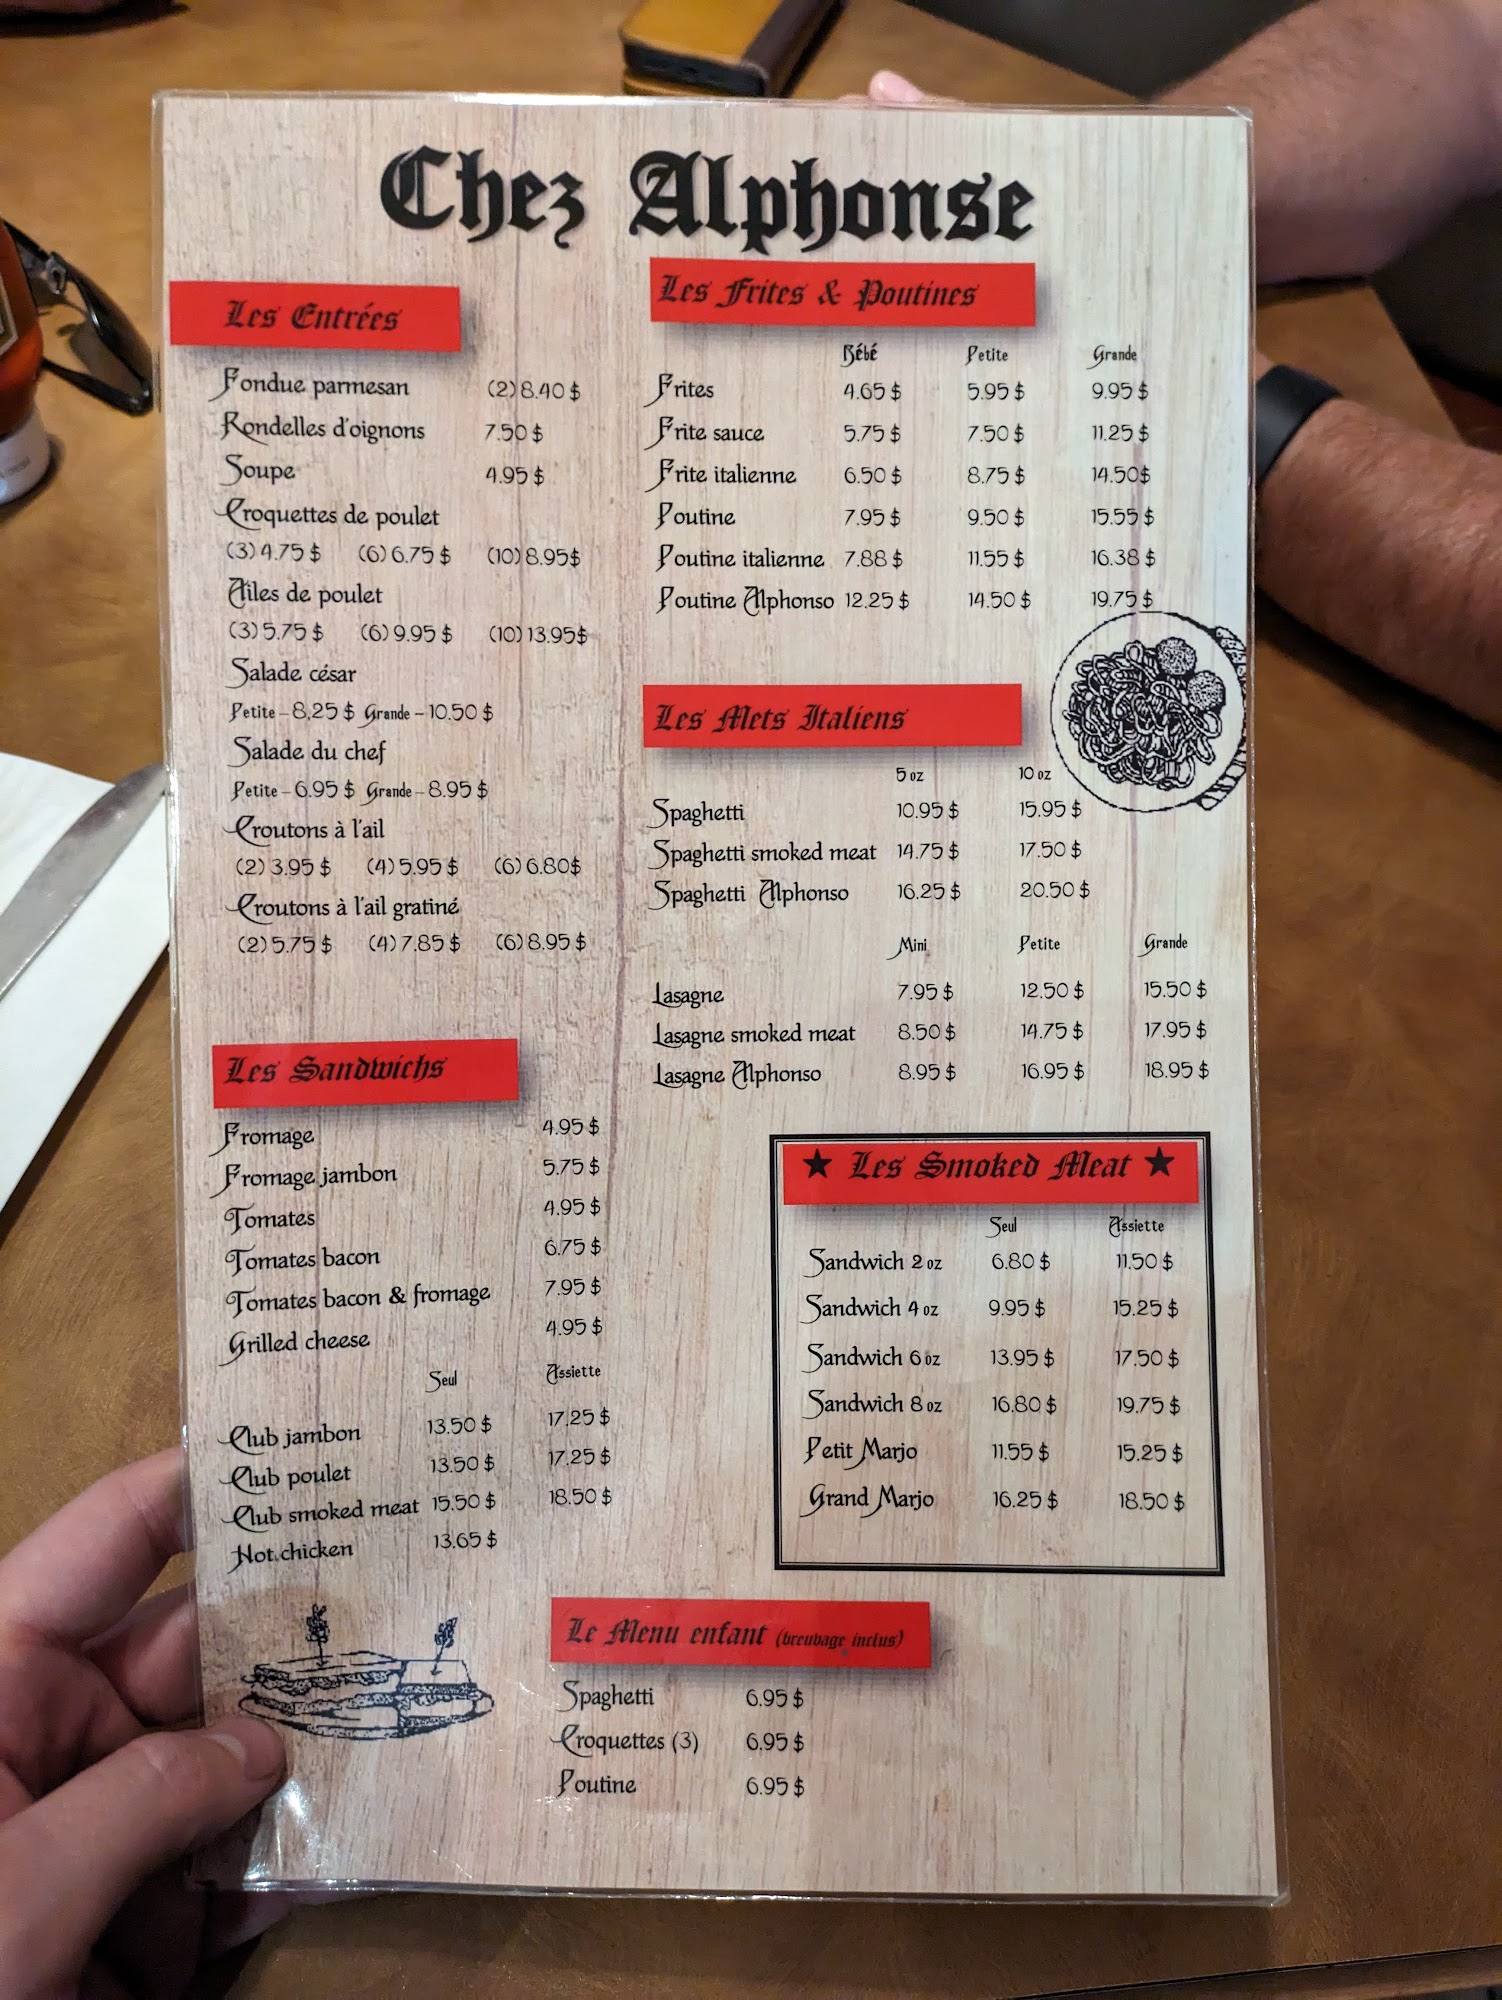 Chez Alphonse
Les Entrées
Fondue parmesan (2) 8.40 $
Rondelles d'oignons 7.50 $
Soupe 4.95 $
Croquettes de poulet
(3) 4.75 $ (6) 6.75 $ (10) 8.95$
Ailes de poulet
(3) 5.75 $ (6) 9.95 $ (10) 13.95$
Salade césar
Petite - 8,25 $ Grande - 10.50 $
Salade du chef
Petite - 6.95 $ Grande - 8.95 $
Croutons à l'ail
(2) 3.95 $ (4) 5.95 $ (6) 6.80$
Croutons à l'ail gratiné
(2) 5.75 $ (4) 7.85 $ (6) 8.95 $
Les Sandwichs
Fromage 4.95 $
Fromage jambon 5.75 $
Tomates 4.95 $
Tomates bacon 6.75 $
Tomates bacon & fromage 7.95 $
Grilled cheese 4.95 $
Seul Assiette
Club jambon 13.50 $ 17.25 $
Club poulet 13.50 $ 17.25 $
Club smoked meat 15.50 $ 18.50 $
Hot chicken 13.65 $
Les Frites & Poutines
Bébé Petite Grande
Frites 4.65 $ 5.95 $ 9.95 $
Frite sauce 5.75 $ 7.50 $ 11.25 $
Frite italienne 6.50 $ 8.75 $ 14.50$
Poutine 7.95 $ 9.50 $ 15.55 $
Poutine italienne 7.88 $ 11.55 $ 16.38 $
Poutine Alphonso 12.25 $ 14.50 $ 19.75 $
Les Mets Italiens
5 oz 10 oz
Spaghetti 10.95 $ 15.95 $
Spaghetti smoked meat 14.75 $ 17.50 $
Spaghetti Alphonso 16.25 $ 20.50 $
Mini Petite Grande
Lasagne 7.95 $ 12.50 $ 15.50 $
Lasagne smoked meat 8.50 $ 14.75 $ 17.95 $
Lasagne Alphonso 8.95 $ 16.95 $ 18.95 $
★ Les Smoked Meat ★
Seul Assiette
Sandwich 2 oz 6.80 $ 11.50 $
Sandwich 4 oz 9.95 $ 15.25 $
Sandwich 6 oz 13.95 $ 17.50 $
Sandwich 8 oz 16.80 $ 19.75 $
Petit Marjo 11.55 $ 15.25 $
Grand Marjo 16.25 $ 18.50 $
Le Menu enfant (breuvage inclus)
Spaghetti 6.95 $
Croquettes (3) 6.95 $
Poutine 6.95 $